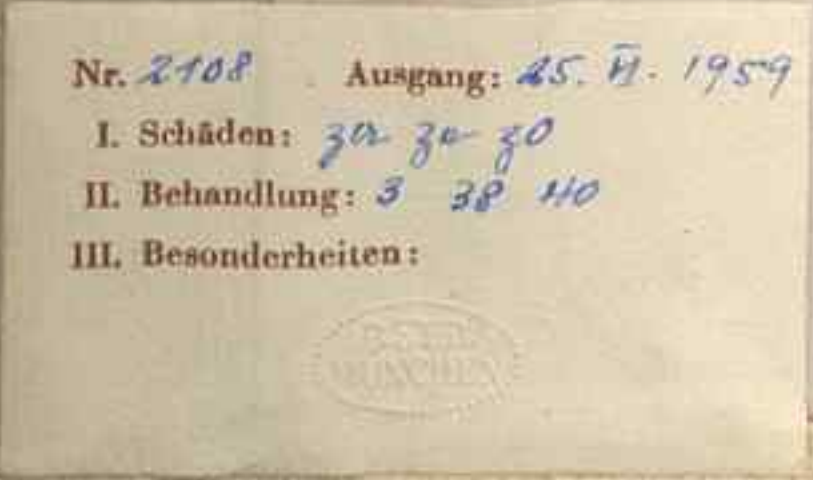 Nr. 2108 Ausgang: 25. VI. 1959
I. Schäden: za zu zo
II. Behandlung: 3 38 40
III. Besonderheiten:
MÜNCHEN